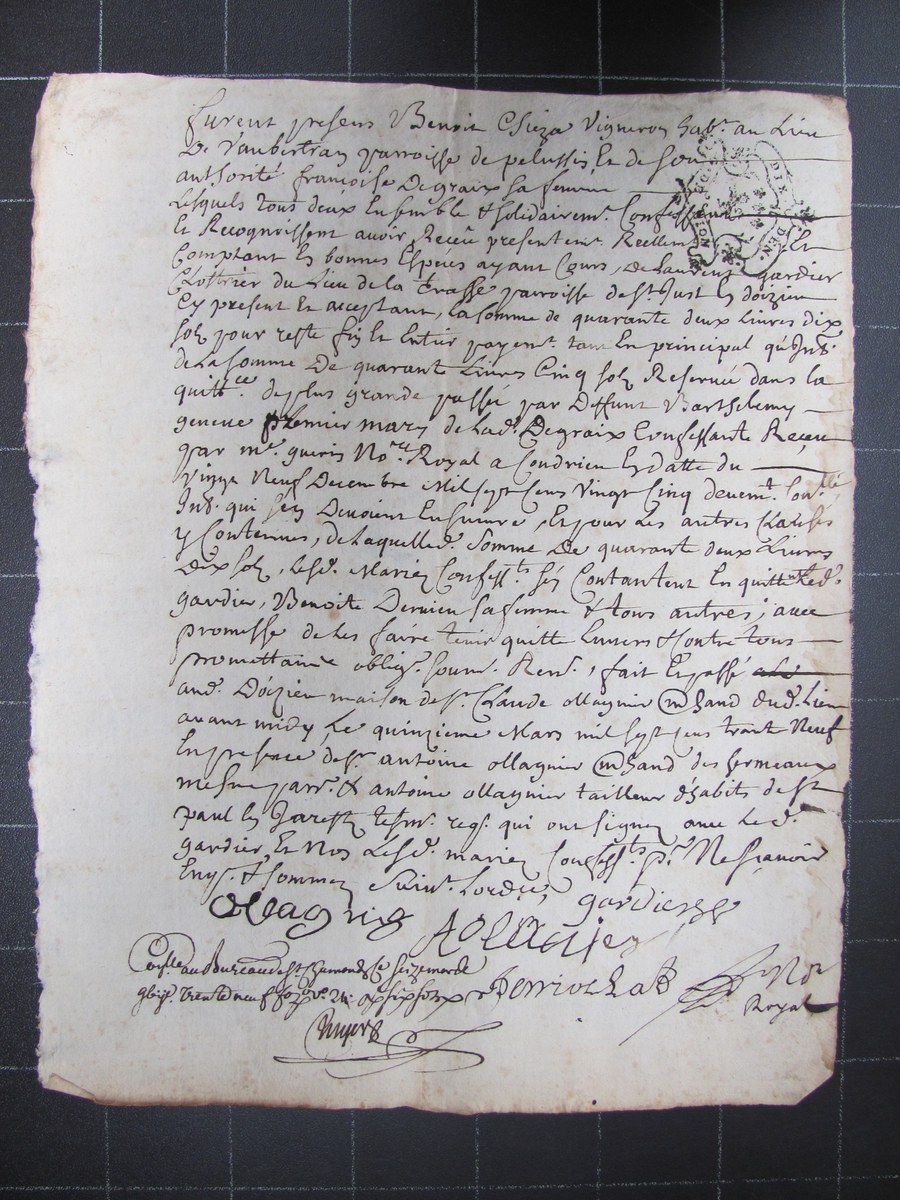 furent presens Benoit Chieza Vigneron habt. au Lieu
De Vaubertran parroisse de pelussin Et de Son
authorité françoise Degraix sa femme
Lesquels tous deux Ensemble & solidairemt. Confessent
Et Recognoissent avoir Receu presentemt. Reellemt. Et
Comptant En bonnes Espéces ayant Cours, de Laurent gardier
Clottrier du Lieu de la Trasse parroisse de St. Just En doizieu
Cy present et acceptant, La somme de quarante deux Livres dix
solz pour reste fin Et Entier payemt. tant En principal qu'Intt.
de La somme De quarant Livres Cinq solz Reservée dans la
quittce. de plus grande passée par Deffunt Barthelemy
geneve premier mary de Lad. Degraix Confessante Receu
par me. guerin Nore. Royal a Condrieu En datte du
Vingt Neuf Decembre Mil sept Cens Vingt Cinq
Intt. qui s'en Devoient Ensuivre, Et pour Les autres Clauses
y Contenues, de Laquelle d. Somme De quarante deux Livres
Dix solz, Lesd. Mariez Confessts. s'en Contantent En quittent Led.
gardier, Benoite Dernieu sa femme & tous autres; avec
promesse de Les faire tenir quitte Envers & Contre tous
promettant obligt. soumt. Rent., fait Et passé
aud. Doizieu maison de sr. Claude Ollagnier Mchand dud. Lieu
avant midy Le quinzieme Mars mil sept cens trante Neuf
En presence de sr. antoine Ollagnier Mchand des fermeaux
mesme parr. & antoine Ollagnier tailleur d'habits de St
paul En Jarestz tesms. reqs. qui ont signez avec Led.
gardier, Et Non Lesd. mariez Confessts. pr. Ne sçavoir
Enqs. & sommez Suivt. Lordce,
gardier
Ollagnier
AOllagnier
Conlle au Bureau de st Chamond ce seize mars
trente neuf six sols
Perrochat Nre
Royal